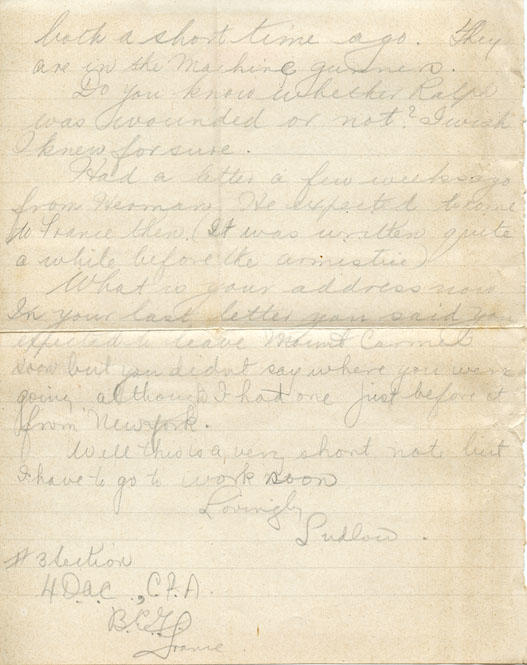 both a short time ago. They
are in the Machine gunners.
Do you know whether Ralph
was wounded or not? I wish
I knew for sure.
Had a letter a few weeks ago
from Herman. He expected to come
to France then. (It was written quite
a while before the armistice)
What is your address now
In your last letter you said you
expected to leave Mount Carmel
soon but you didn't say where you were
going although I had one just before it
from New York.
Well this is a very short not but
I have to go to work soon
Lovingly
Ludlow.
# 3 Section
4 D.a.c., C.F.A.
B.E.F.
France